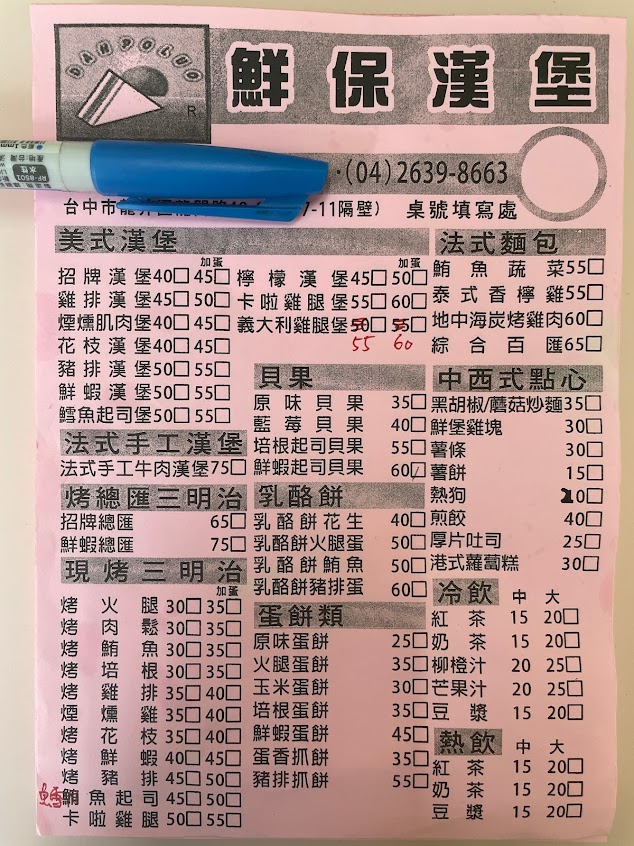 DANPOLUO
R
鮮保漢堡
(04)2639-8663
台中市龍井區
7-11隔壁)
桌號填寫處
美式漢堡
加蛋 加蛋
招牌漢堡40□45□
雞排漢堡45□50□
煙燻肌肉堡40□45□
花枝漢堡40□45□
豬排漢堡50□55□
鮮蝦漢堡50□55□
鱈魚起司堡50□55□
檸檬漢堡45□50□
卡啦雞腿堡55□60□
義大利雞腿堡50□55□
55 60
法式手工漢堡
法式手工牛肉漢堡75□
烤總匯三明治
招牌總匯 65□
鮮蝦總匯 75□
現烤三明治
加蛋
烤火腿30□35□
烤肉鬆30□35□
烤鮪魚30□35□
烤培根30□35□
烤雞排35□40□
煙燻雞35□40□
烤花枝35□40□
烤鮮蝦40□45□
烤豬排45□50□
鱈
鮪魚起司45□50□
卡啦雞腿50□55□
貝果
原味貝果 35□
藍莓貝果 40□
培根起司貝果 55□
鮮蝦起司貝果 60□
乳酪餅
乳酪餅花生 40□
乳酪餅火腿蛋 50□
乳酪餅鮪魚 50□
乳酪餅豬排蛋 60□
蛋餅類
原味蛋餅 25□
火腿蛋餅 35□
玉米蛋餅 30□
培根蛋餅 35□
鮮蝦蛋餅 45□
蛋香抓餅 35□
豬排抓餅 55□
法式麵包
鮪魚蔬菜55□
泰式香檸雞55□
地中海炭烤雞肉60□
綜合百匯65□
中西式點心
黑胡椒/蘑菇炒麵35□
鮮堡雞塊 30□
薯條 30□
薯餅 15□
熱狗 20□
煎餃 40□
厚片吐司 25□
港式蘿蔔糕 30□
冷飲 中 大
紅茶 15 20□
奶茶 15 20□
柳橙汁 20 25□
芒果汁 20 25□
豆漿 15 20□
熱飲 中 大
紅茶 15 20□
奶茶 15 20□
豆漿 15 20□